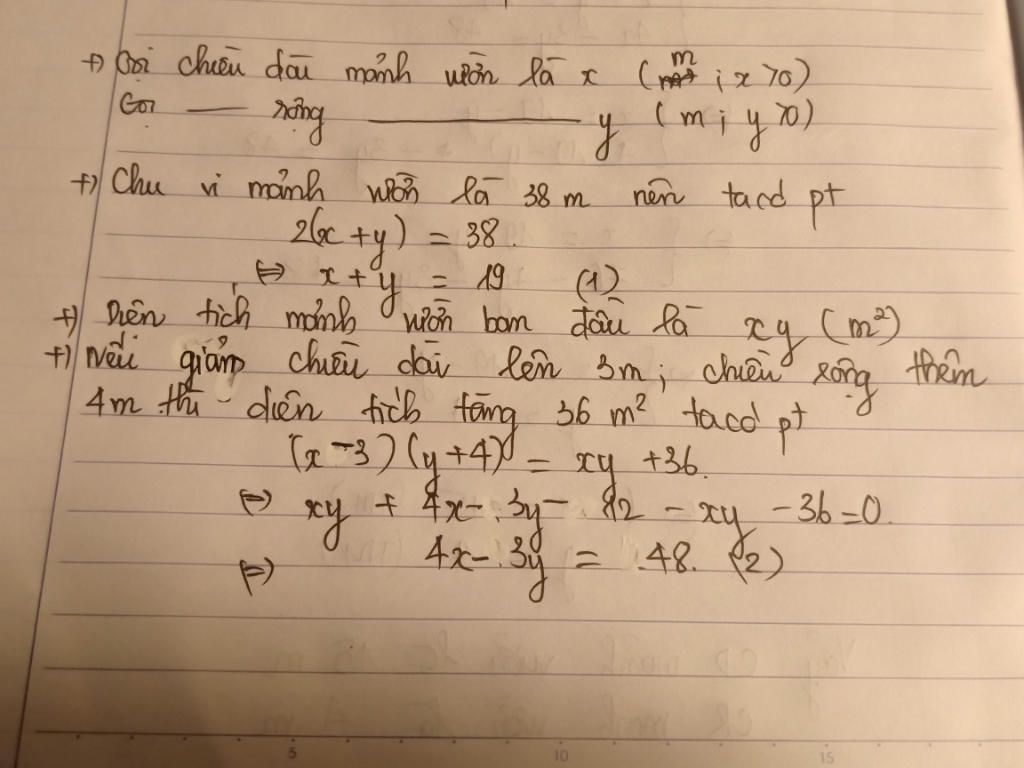 +) Gọi chiều dài mảnh vườn là x (m ; x >0)
Gọi —— rộng ———————— y (m ; y >0)
+) Chu vi mảnh vườn là 38 m nên ta có pt
2(x + y) = 38.
⇔ x + y = 19 (1)
+) Diện tích mảnh vườn ban đầu là xy (m²)
+) Nếu giảm chiều dài lên 3m ; chiều rộng thêm
4m thì diện tích tăng 36 m² ta có pt
(x - 3) (y + 4) = xy + 36.
⇔ xy + 4x - 3y - 12 - xy - 36 = 0.
⇔ 4x - 3y = 48. (2)
5 10 15